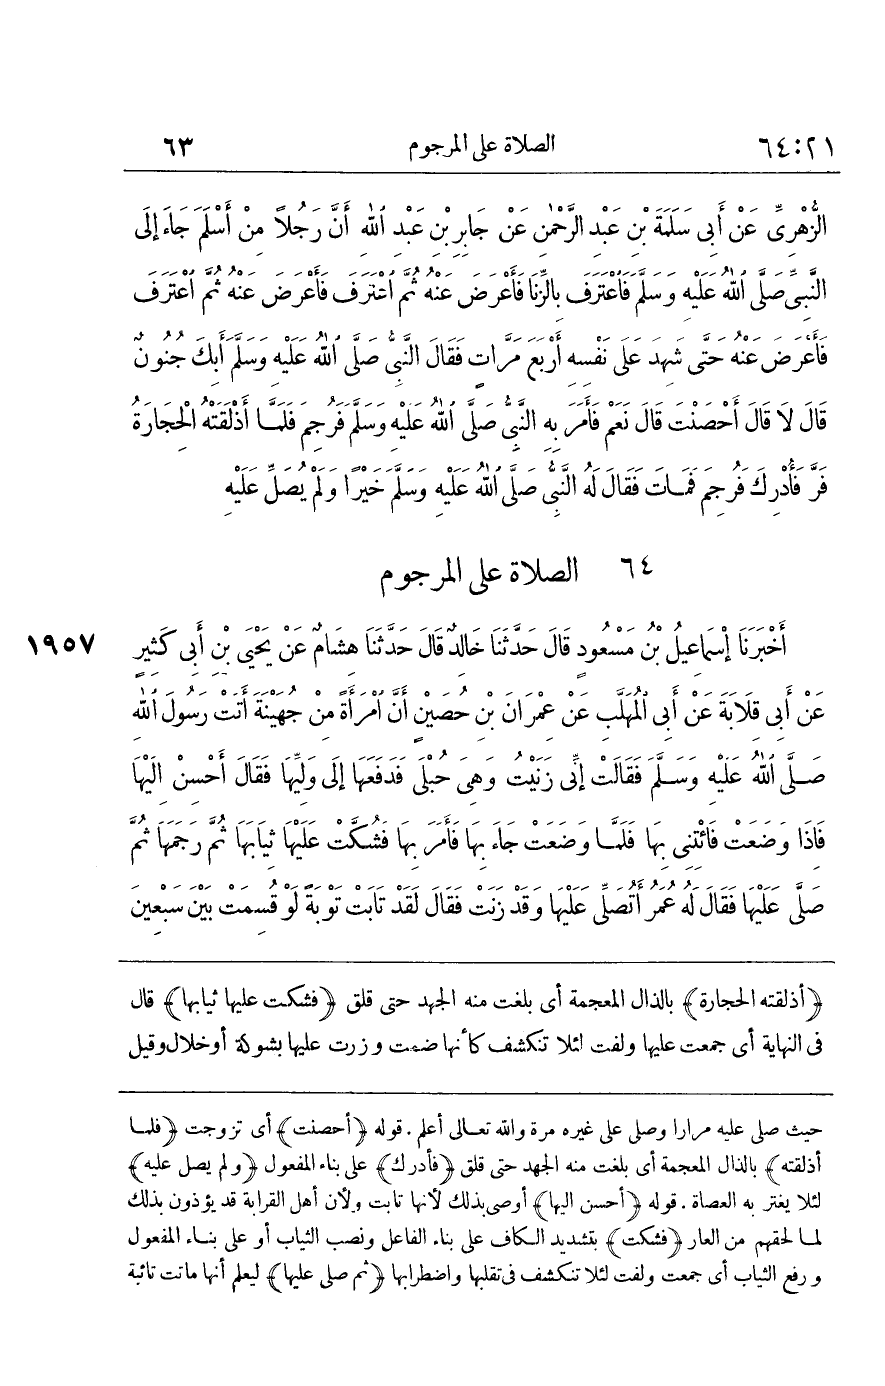 ٦٤:٢١ الصلاة على المرجوم ٦٣
الزُّهْرِىِّ عَنْ أَبِى سَلَمَةَ بْنِ عَبْدِ الرَّحْمٰنِ عَنْ جَابِرِ بْنِ عَبْدِ اللهِ أَنَّ رَجُلاً مِنْ أَسْلَمَ جَاءَ إِلَى
النَّبِىِّ صَلَّى اللهُ عَلَيْهِ وَسَلَّمَ فَاعْتَرَفَ بِالزِّنَا فَأَعْرَضَ عَنْهُ ثُمَّ اعْتَرَفَ فَأَعْرَضَ عَنْهُ ثُمَّ اعْتَرَفَ
فَأَعْرَضَ عَنْهُ حَتَّى شَهِدَ عَلَى نَفْسِهِ أَرْبَعَ مَرَّاتٍ فَقَالَ النَّبِىُّ صَلَّى اللهُ عَلَيْهِ وَسَلَّمَ أَبِكَ جُنُونٌ
قَالَ لَا قَالَ أَحْصَنْتَ قَالَ نَعَمْ فَأَمَرَ بِهِ النَّبِىُّ صَلَّى اللهُ عَلَيْهِ وَسَلَّمَ فَرُجِمَ فَلَمَّا أَذْلَقَتْهُ الْحِجَارَةُ
فَرَّ فَأُدْرِكَ فَرُجِمَ فَمَاتَ فَقَالَ لَهُ النَّبِىُّ صَلَّى اللهُ عَلَيْهِ وَسَلَّمَ خَيْرًا وَلَمْ يُصَلِّ عَلَيْهِ
٦٤ الصلاة على المرجوم
أَخْبَرَنَا إِسْمَاعِيلُ بْنُ مَسْعُودٍ قَالَ حَدَّثَنَا خَالِدٌ قَالَ حَدَّثَنَا هِشَامٌ عَنْ يَحْيَى بْنِ أَبِى كَثِيرٍ ١٩٥٧
عَنْ أَبِى قِلَابَةَ عَنْ أَبِى الْمُهَلَّبِ عَنْ عِمْرَانَ بْنِ حُصَيْنٍ أَنَّ امْرَأَةً مِنْ جُهَيْنَةَ أَتَتْ رَسُولَ اللهِ
صَلَّى اللهُ عَلَيْهِ وَسَلَّمَ فَقَالَتْ إِنِّى زَنَيْتُ وَهِىَ حُبْلَى فَدَفَعَهَا إِلَى وَلِيِّهَا فَقَالَ أَحْسِنْ الَيْهَا
فَاذَا وَضَعَتْ فَائْتِنِى بِهَا فَلَمَّا وَضَعَتْ جَاءَ بِهَا فَأَمَرَ بِهَا فَشُكَّتْ عَلَيْهَا ثِيَابُهَا ثُمَّ رَجَمَهَا ثُمَّ
صَلَّى عَلَيْهَا فَقَالَ لَهُ عُمَرُ أَتُصَلِّى عَلَيْهَا وَقَدْ زَنَتْ فَقَالَ لَقَدْ تَابَتْ تَوْبَةً لَوْ قُسِمَتْ بَيْنَ سَبْعِينَ
﴿أذلقته الحجارة﴾ بالذال المعجمة أى بلغت منه الجهد حتى قلق ﴿فشكت عليها ثيابها﴾ قال
فى النهاية أى جمعت عليها ولفت لئلا تنكشف كأنها ضمت وزرت عليها بشوكة أو خلال وقيل
حيث صلى عليه مرارا وصلى على غيره مرة والله تعالى أعلم . قوله ﴿أحصنت﴾ أى تزوجت ﴿فلما
أذلقته﴾ بالذال المعجمة أى بلغت منه الجهد حتى قلق ﴿فأدرك﴾ على بناء المفعول ﴿ولم يصل عليه﴾
لئلا يغتر به العصاة . قوله ﴿أحسن اليها﴾ أوصى بذلك لأنها تابت ولأن أهل القرابة قد يؤذون بذلك
لما لحقهم من العار ﴿فشكت﴾ بتشديد الكاف على بناء الفاعل ونصب الثياب أو على بناء المفعول
ورفع الثياب أى جمعت ولفت لئلا تنكشف فى تقلبها واضطرابها ﴿ثم صلى عليها﴾ ليعلم أنها ماتت تائبة